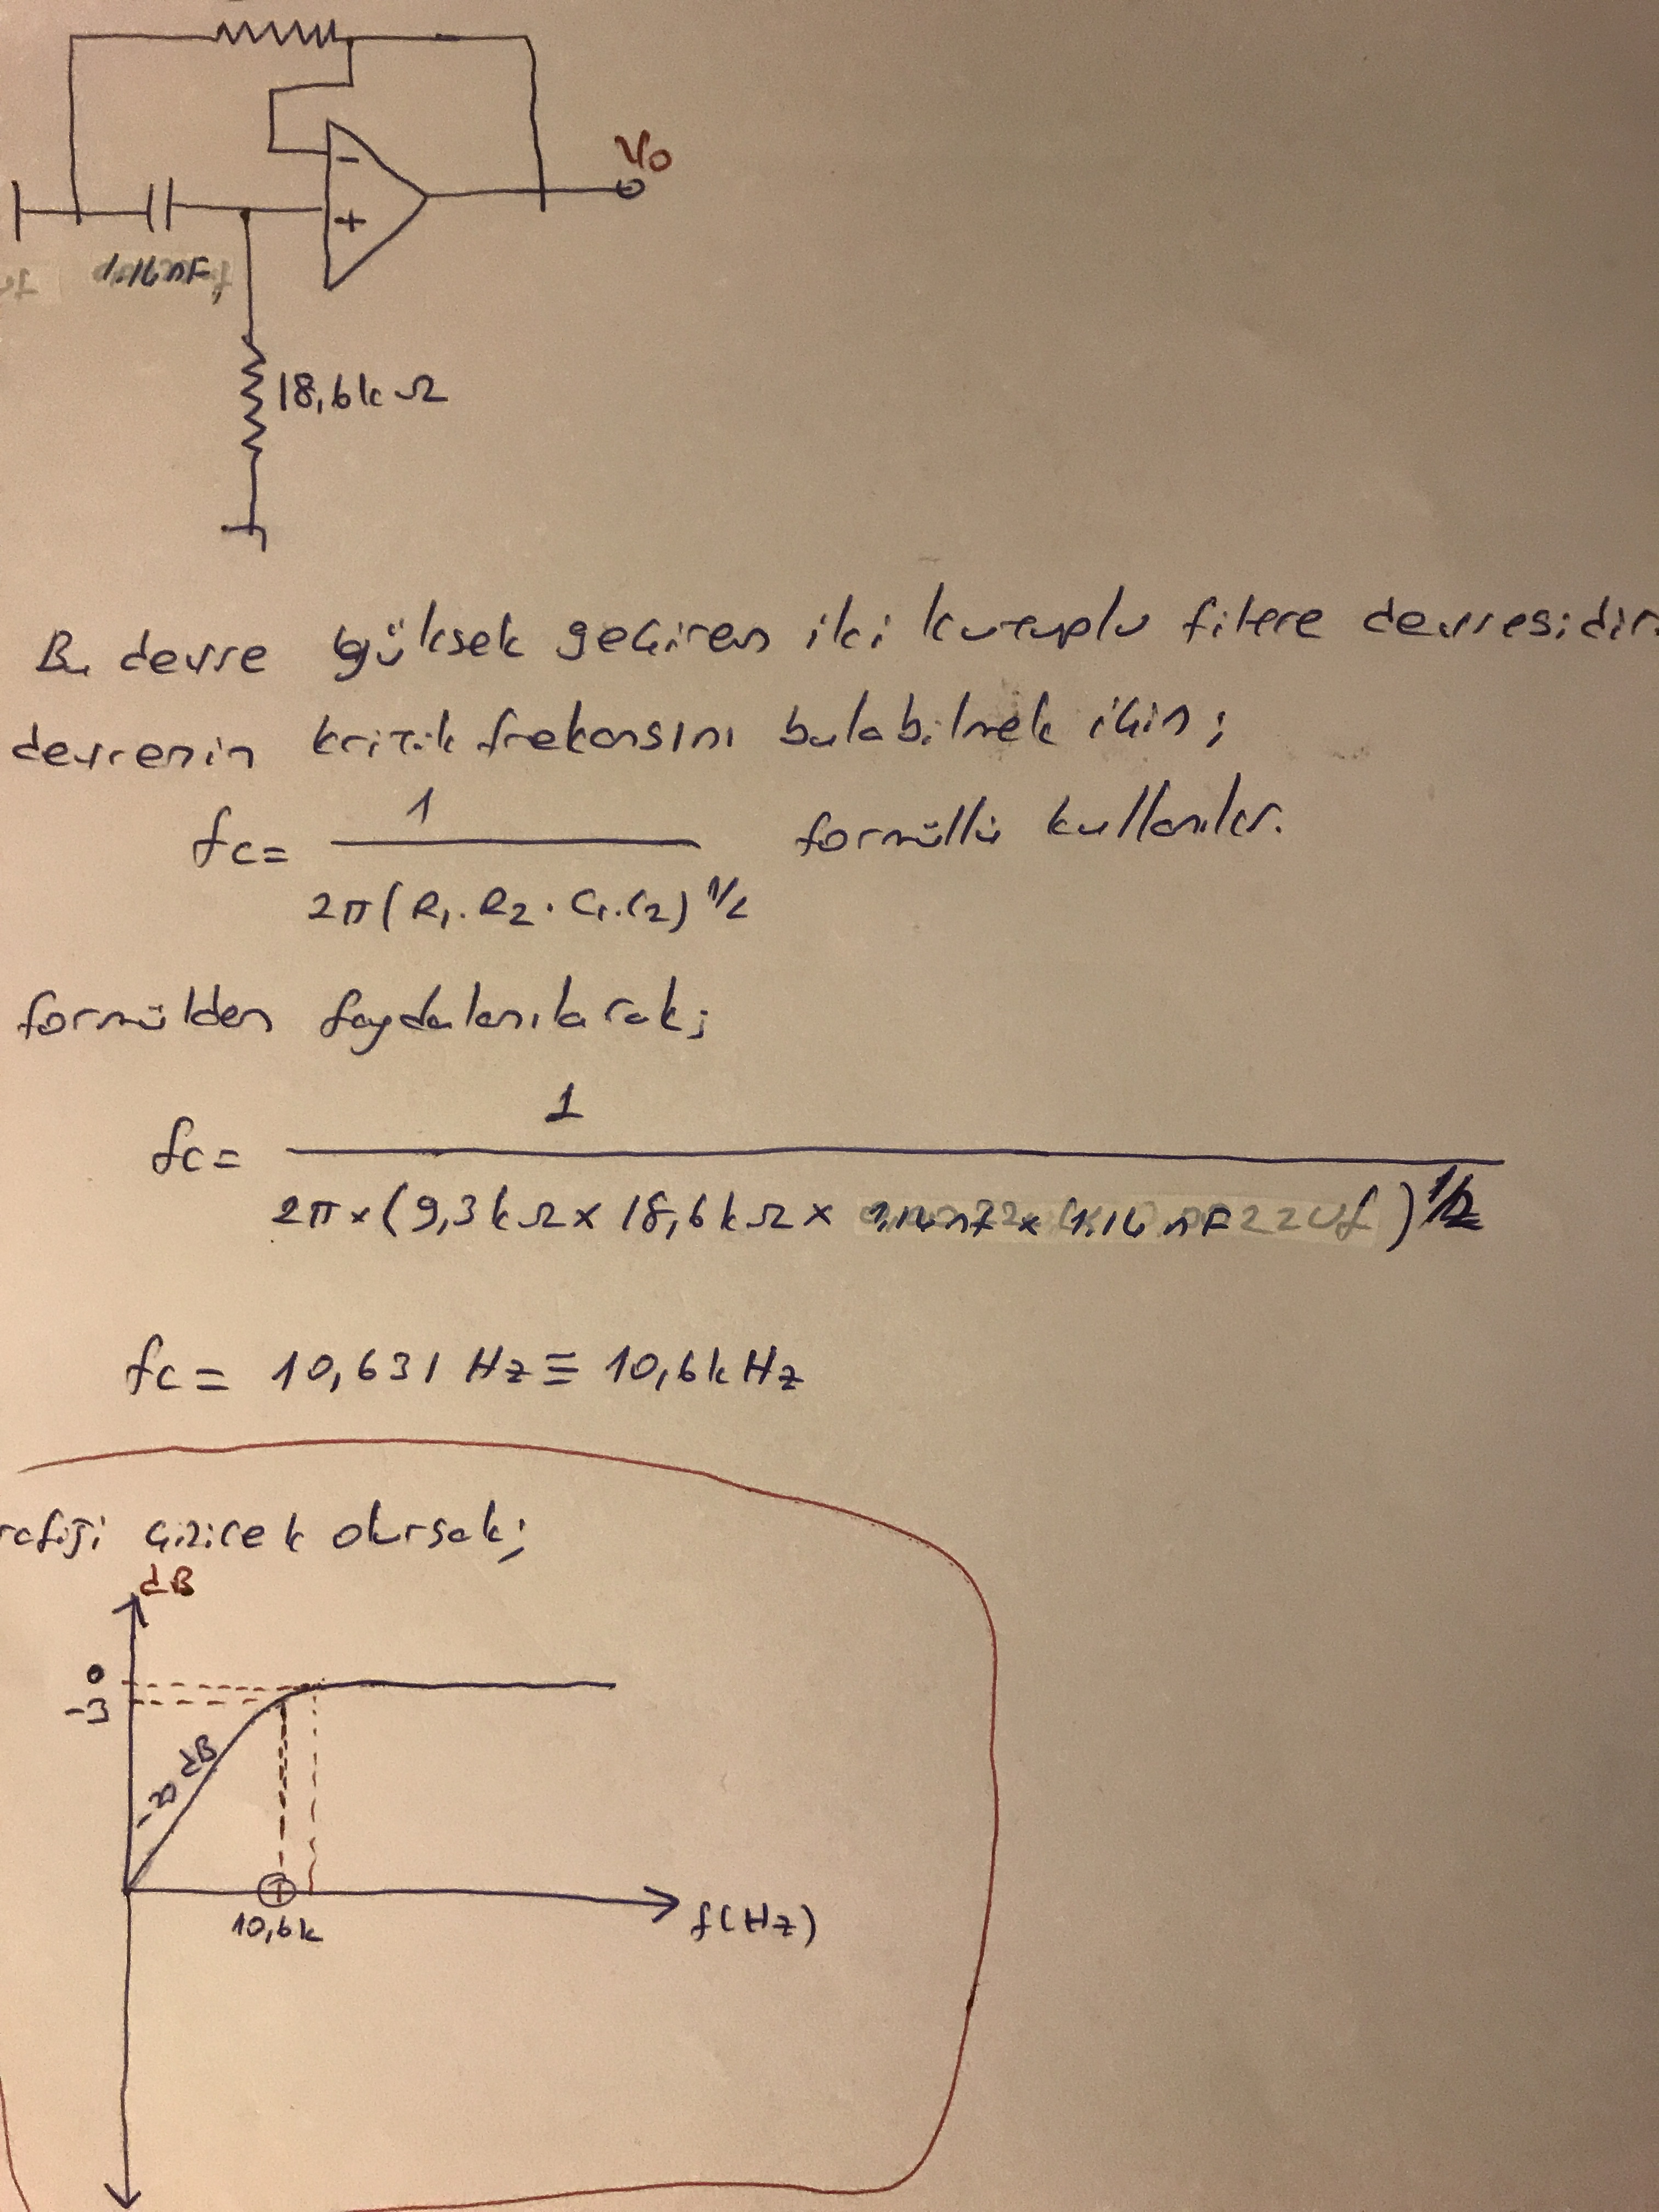 Vo
-
+
1.16nF
18,6kΩ
Bu devre yüksek geçiren iki kutuplu filtre devresidir.
devrenin kritik frekansını bulabilmek için;
fc= 1 / 2π(R1.R2.C1.C2)^1/2 formüllü kullanılır.
formülden faydalanılarak;
fc= 1 / 2π×(9,3kΩ× 18,6kΩ× 1,16nF× 1.16nF)^1/2
fc= 10,631 Hz ≡ 10,6kHz
rafiği çizicek olursak;
dB
0
-3
-20 dB
10,6k
f(Hz)